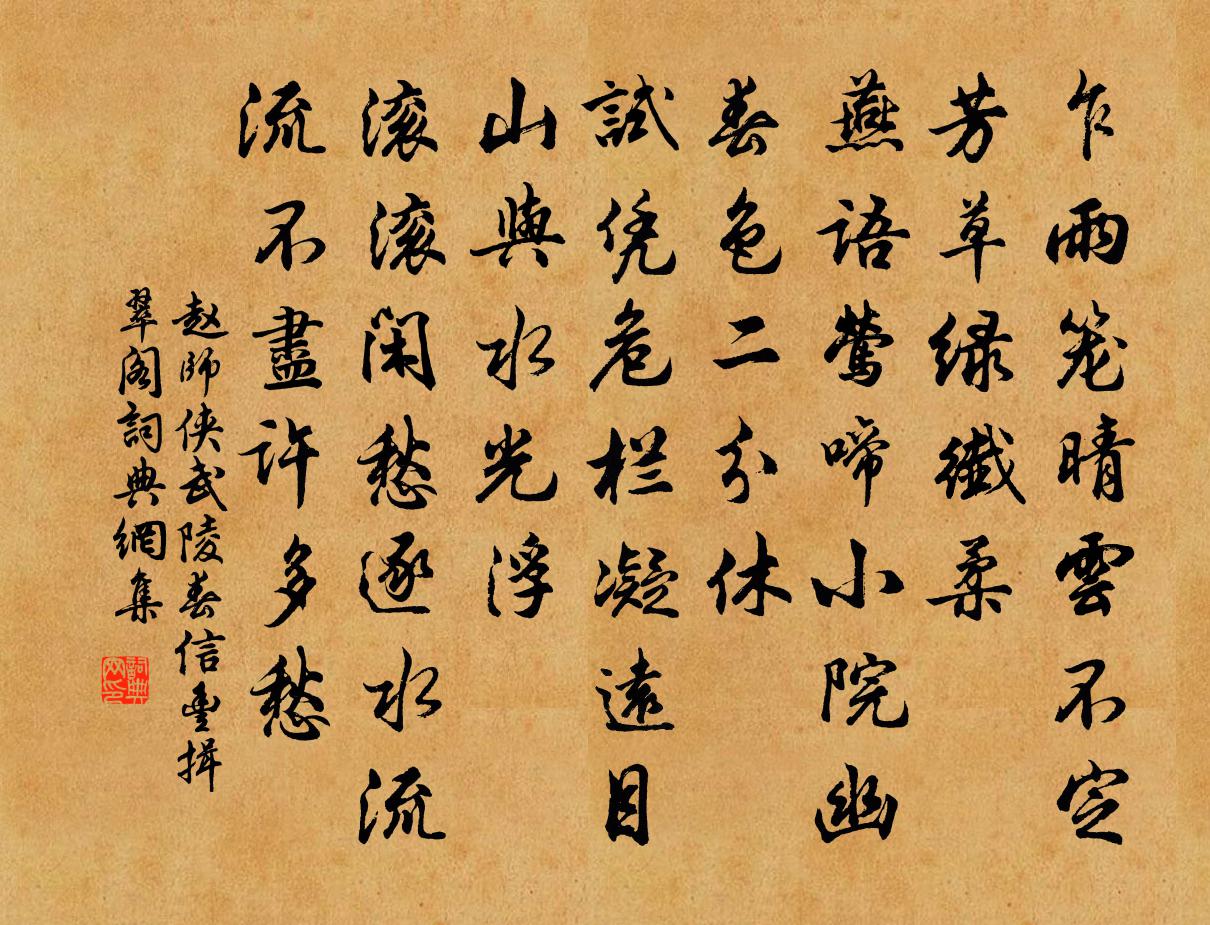 乍雨笼晴雲不定
芳草绿纖柔
燕語莺啼小院幽
春色二分休
試凭危栏凝遠目
山與水光浮
滚滚闲愁逐水流
流不盡許多愁
赵師侠武陵春信豊揖
翠阁詞典網集
詞典
网印